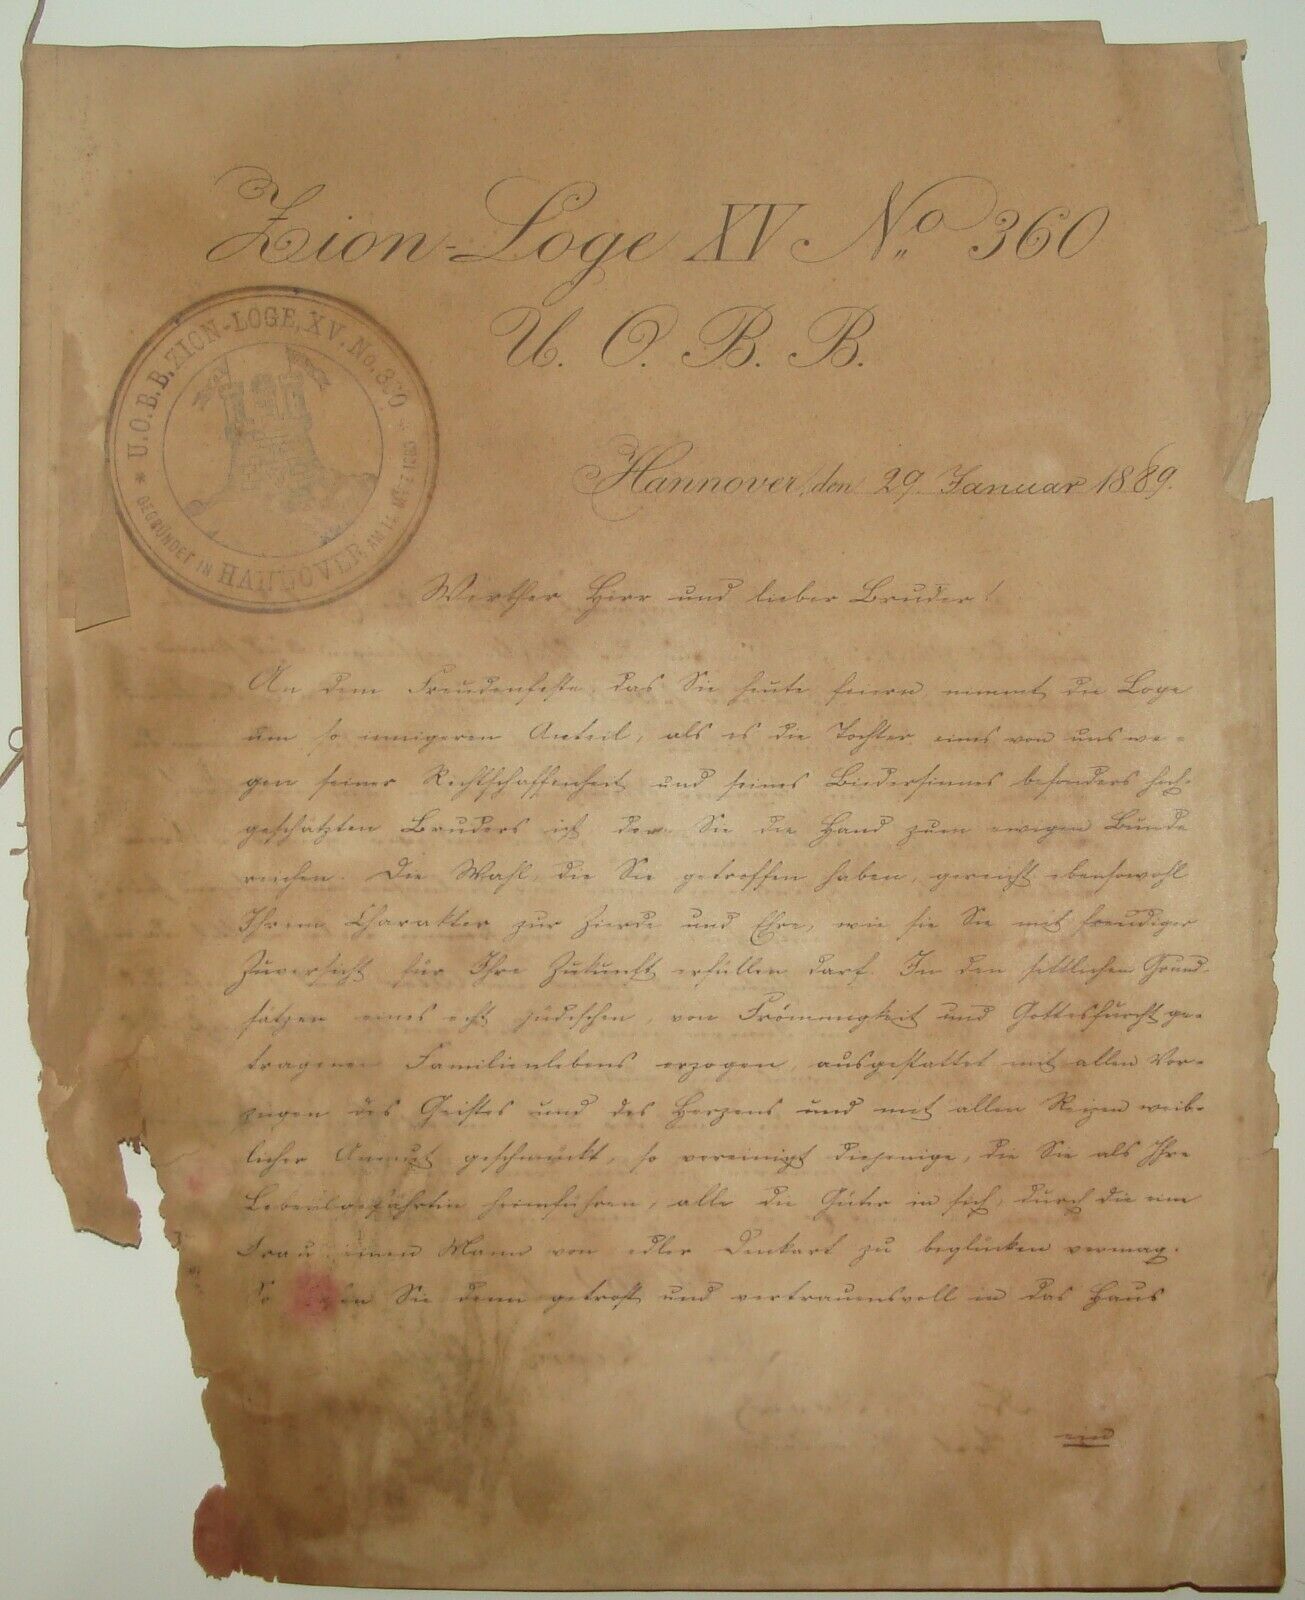 Zion-Loge XV No. 360
U. O. B. B.
U.O.B.B. ZION-LOGE, XV. No. 360
GEGRÜNDET IN HANNOVER AM
Hannover, den 29. Januar 1889.
Werther Herr und lieber Bruder!
An dem Freudenfeste, das Sie heute feiern, nimmt die Loge
um so innigeren Anteil, als es die Tochter eines von uns we-
gen seiner Rechtschaffenheit und seines Biedersinnes besonders hoch-
geschätzten Bruders ist, der Sie die Hand zum ewigen Bunde
reichen. Die Wahl, die Sie getroffen haben, gereicht ebensowohl
Ihrem Charakter zur Zierde und Ehre, wie sie Sie mit freudiger
Zuversicht für Ihre Zukunft erfüllen darf. In den sittlichen Grund-
sätzen eines echt jüdischen, von Frömmigkeit und Gottesfurcht ge-
tragenen Familienlebens erzogen, ausgestattet mit allen Vor-
zügen des Geistes und des Herzens und mit allen Reizen weib-
licher Anmut geschmückt, so vereinigt diejenige, die Sie als Ihre
Lebensgefährtin heimführen, alle die Güter in sich, durch die eine
Frau einen Mann von edler Denkart zu beglücken vermag.
So Sie denn getrost und vertrauensvoll in das Haus
ein